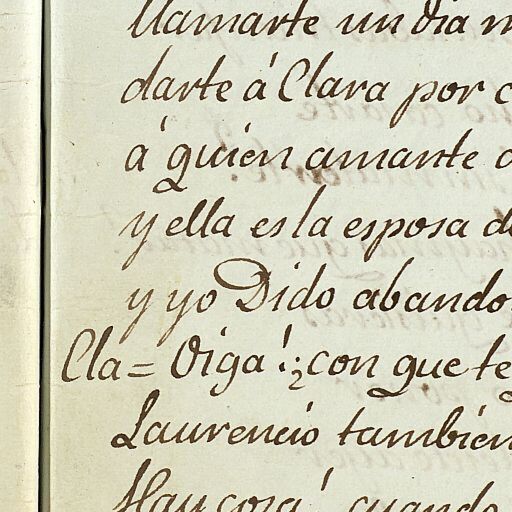 llamarte un dia
darte á Clara por
á quien amante
y ella es la esposa
y yo Dido abando
Cla= Oiga!. ¿con que te
Laurencio tambien
Hay cosa! cuando